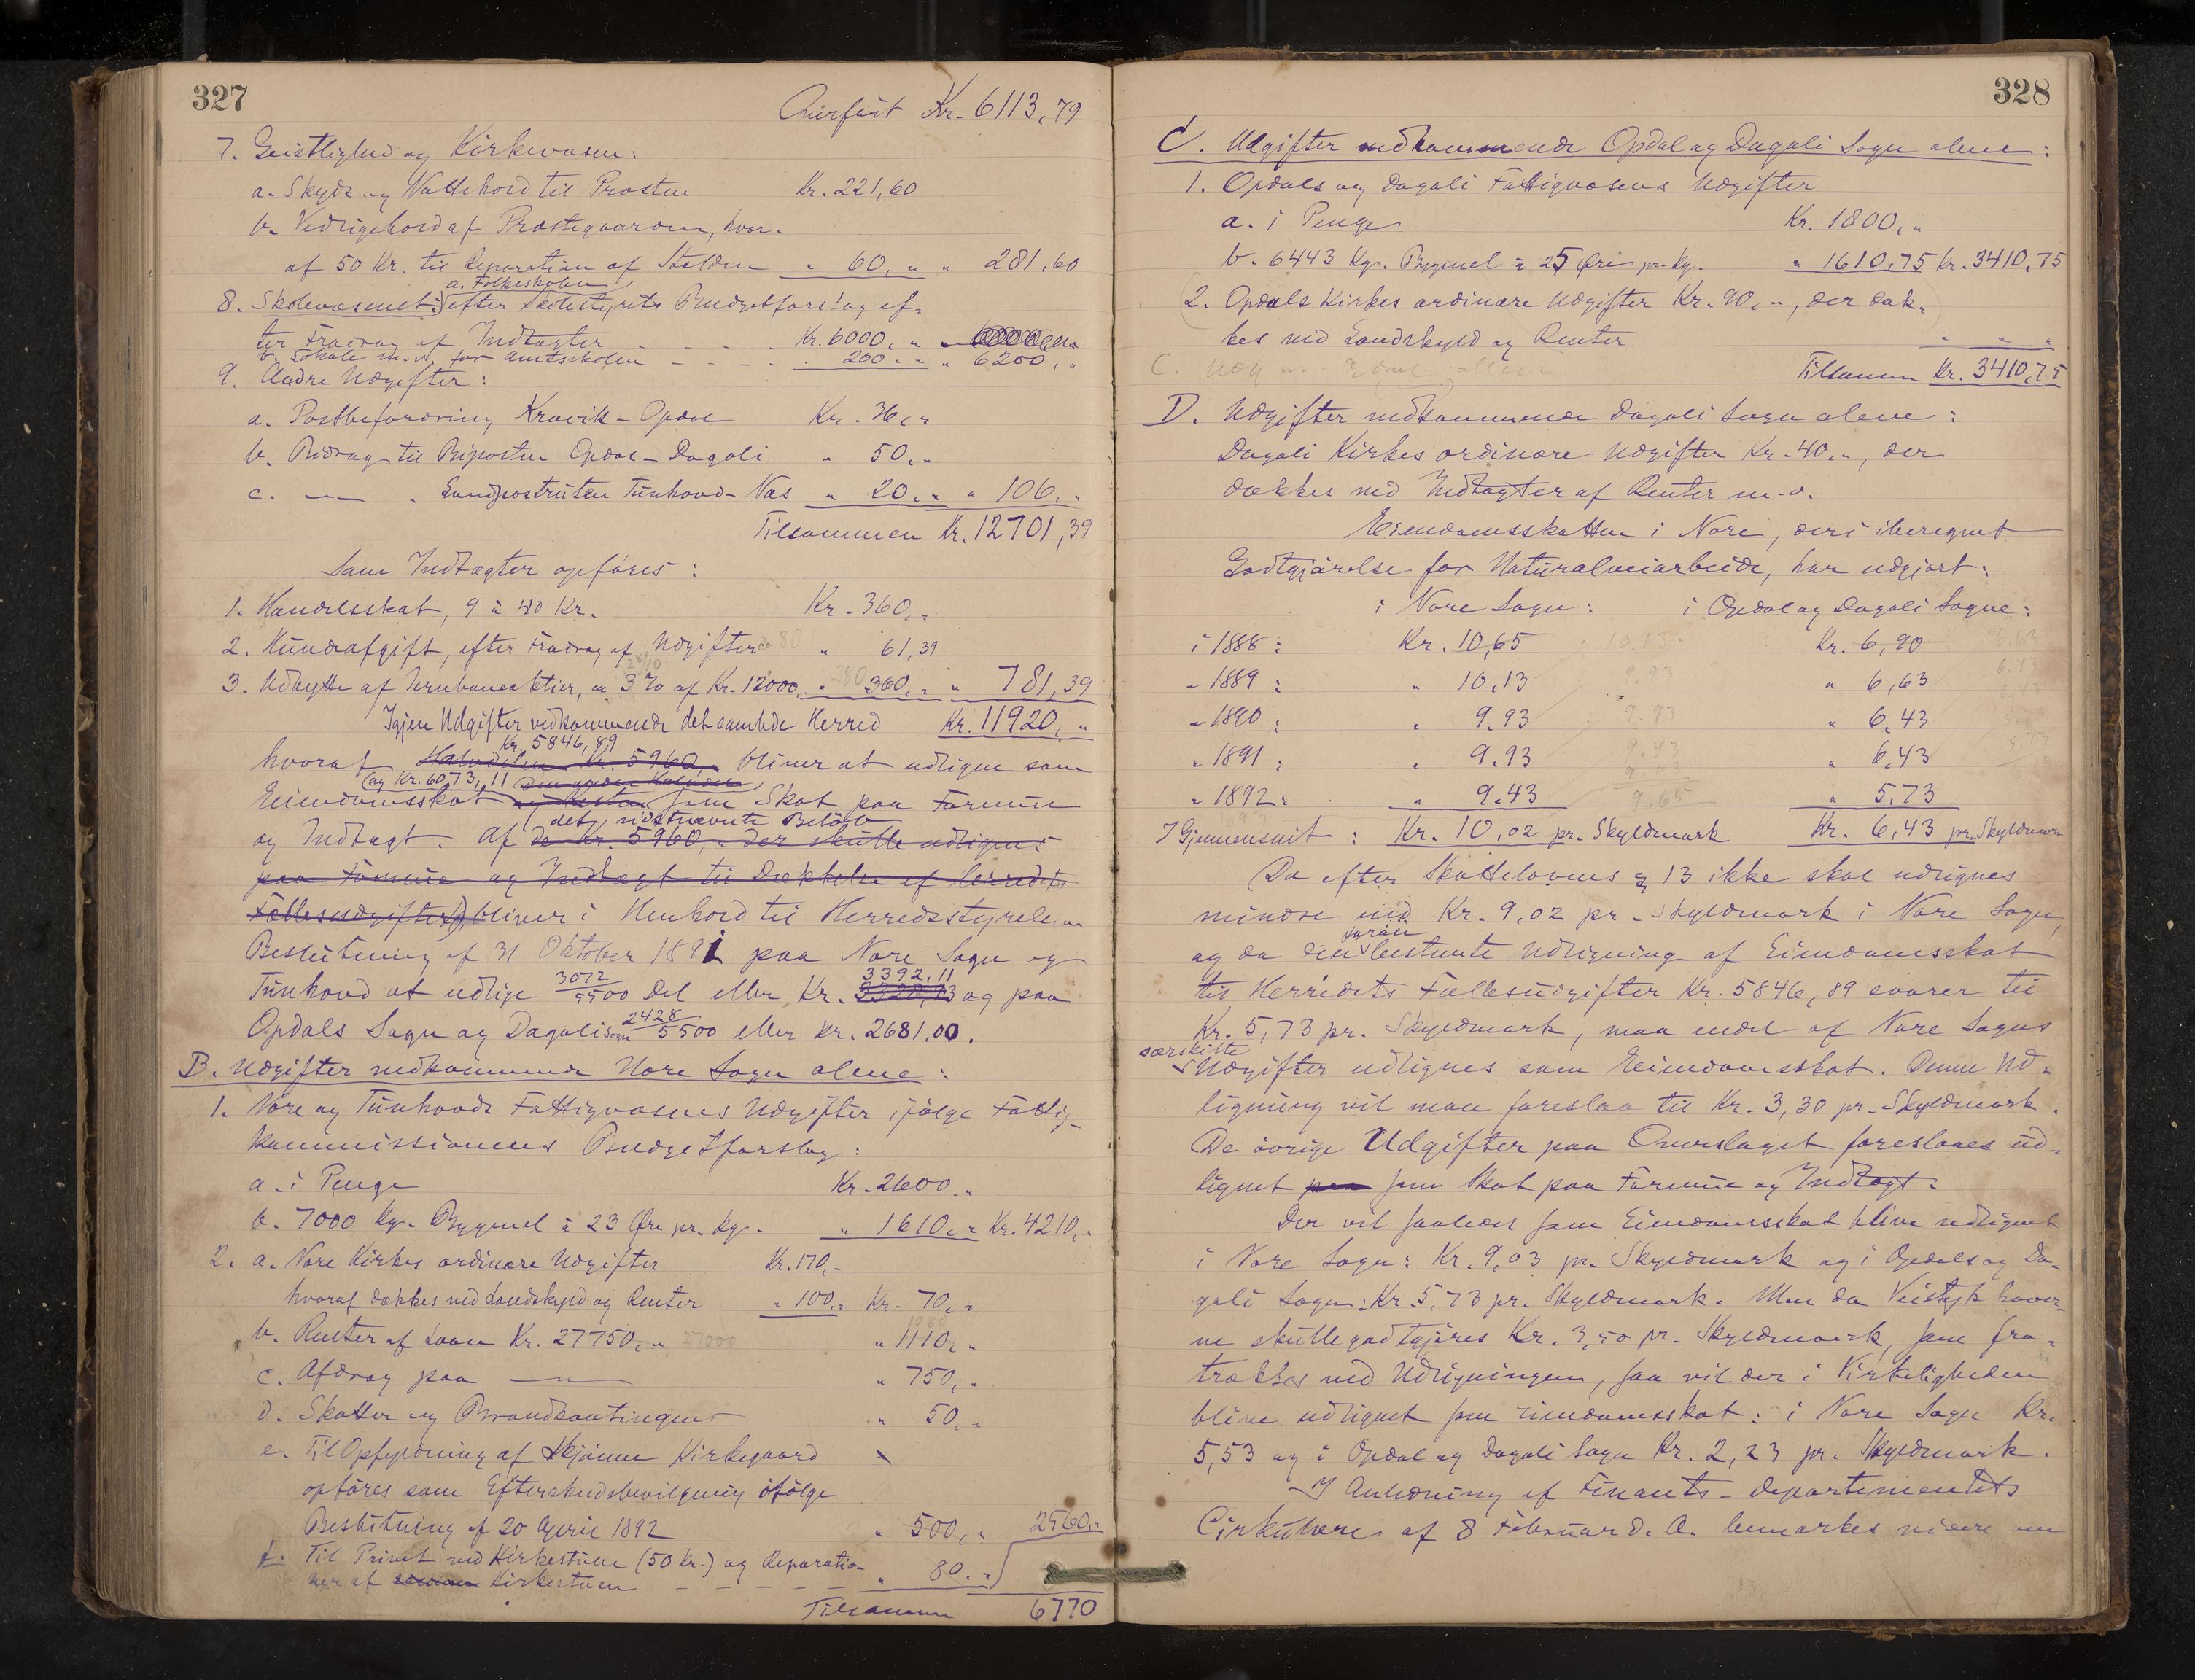 327
Overført Kr. 6113,79
7. Geistlighed og Kirkevæsen:
a. Skyds og Nattehold til Prosten Kr. 221,60
b. Vedligehold af Præstegaarden, hvor-
af 50 Kr. til Reparation af Stalden " 60, " " 281,60
a. Folkeskolen
8. Skolevæsenet: efter Skolestyrets Budgetforslag ef-
ter Fradrag af Indtægter - - - - Kr. 6000, "
b. Lokale m. v. for Amtsskolen - - - - " 200, " " 6200, "
9. Andre Udgifter:
a. Postbefordring Kravik - Opdal Kr. 36, "
b. Bidrag til Biposten Opdal - Dagali " 50, "
c. — " Landpostruten Tunhovd - Næs " 20, " " 106, "
Tilsammen Kr. 12701,39
Som Indtægter opføres:
1. Handelsskat, 9 à 40 Kr. Kr. 360, "
2. Hundeafgift, efter Fradrag af Udgifter " 61,39
3. Udbytte af Jernbaneaktier, ca 3 % af Kr. 12000, " " 360, " " 781,39
Igjen Udgifter vedkommende det samlede Herred Kr. 11920, "
Kr. 5846,89
hvoraf Halvdelen Kr. 5960, bliver at udligne som
og Kr. 6073,11 den anden Halvdel
Eiendomsskat og Resten som Skat paa Formue
det sidstnævnte Beløb
og Indtægt. Af de Kr. 5960, " der skulle udlignes
paa Formue og Indtægt til Dækkelse af Herredets
Fællesudgifter, bliver i Henhold til Herredsstyrelsens
Beslutning af 31 Oktober 1891 paa Nore Sogn og
3072 3392,11
Tunhovd at udligne 5500 Del eller Kr. 3320,13 og paa
2428
Opdals Sogn og Dagali Sogn 5500 eller Kr. 2681,00.
B. Udgifter vedkommende Nore Sogn alene:
1. Nore og Tunhovds Fattigvæsens Udgifter ifølge Fattig-
kommissionens Budgetforslag:
a. i Penge Kr. 2600, "
b. 7000 Kg. Bygmel à 23 Øre pr. Kg. " 1610, " Kr. 4210, "
2. a. Nore Kirkes ordinære Udgifter Kr. 170, "
hvoraf dækkes ved Landskyld og Renter " 100, " Kr. 70, "
b. Renter af Laan Kr. 27750, " " 1110, "
c. Afdrag paa — " 750, "
d. Skatter og Brandkontingent " 50, "
e. Til Opfyldning af Skjønne Kirkegaard
opføres som Efterskudsbevilgning ifølge
Beslutning af 20 April 1892 " 500, " 2560, "
f. Til Privet ved Kirkestuen (50 Kr.) og Reparatio-
ner af samme Kirkestuen - - - - " 80, "
Tilsammen 6770
328
C. Udgifter vedkommende Opdal og Dagali Sogn alene:
1. Opdals og Dagali Fattigvæsens Udgifter
a. i Penge Kr. 1800, "
b. 6443 Kg. Bygmel à 25 Øre pr. Kg. " 1610,75 Kr. 3410,75
2. Opdals Kirkes ordinære Udgifter Kr. 90, ", der dæk-
kes ved Landskyld og Renter " " "
Tilsammen Kr. 3410,75
D. Udgifter vedkommende Dagali Sogn alene:
Dagali Kirkes ordinære Udgifter Kr. 40, ", der
dækkes ved Indtægter af Renter m. v.
Eiendomsskatten i Nore, deri iberegnet
Godtgjørelse for Naturalveiarbeide, har udgjort:
i Nore Sogn: i Opdal og Dagali Sogne:
i 1888: Kr. 10,65 Kr. 6,90
" 1889: " 10,13 " 6,63
" 1890: " 9.93 " 6,43
" 1891: " 9.93 " 6,43
" 1892: " 9.43 " 5,73
I Gjennemsnit: Kr. 10,02 pr. Skyldmark Kr. 6,43 pr. Skyldmark
Da efter Skattelovens § 13 ikke skal udlignes
mindre end Kr. 9,02 pr. Skyldmark i Nore Sogn,
foran
og da den bestemte Udligning af Eiendomsskat
til Herredets Fællesudgifter Kr. 5846,89 svarer til
Kr. 5,73 pr. Skyldmark, maa endel af Nore Sogns
særskilte
Udgifter udlignes som Eiendomsskat. Denne Ud-
ligning vil man foreslaa til Kr. 3,30 pr. Skyldmark.
De øvrige Udgifter paa Overslaget foreslaaes ud-
lignet paa som Skat paa Formue og Indtægt.
Der vil saaledes som Eiendomsskat blive udlignet
i Nore Sogn: Kr. 9,03 pr. Skyldmark og i Opdals og Da-
gali Sogn: Kr. 5,73 pr. Skyldmark. Men da Veistykhaver-
ne skulle godtgjøres Kr. 3,50 pr. Skyldmark, som fra-
trækkes ved Udligningen, saa vil der i Virkeligheden
blive udlignet som Eiendomsskat: i Nore Sogn Kr.
5,53 og i Opdal og Dagali Sogn Kr. 2,23 pr. Skyldmark.
I Anledning af Finants-Departementets
Cirkulære af 8 Februar d. A. bemærkes videre om